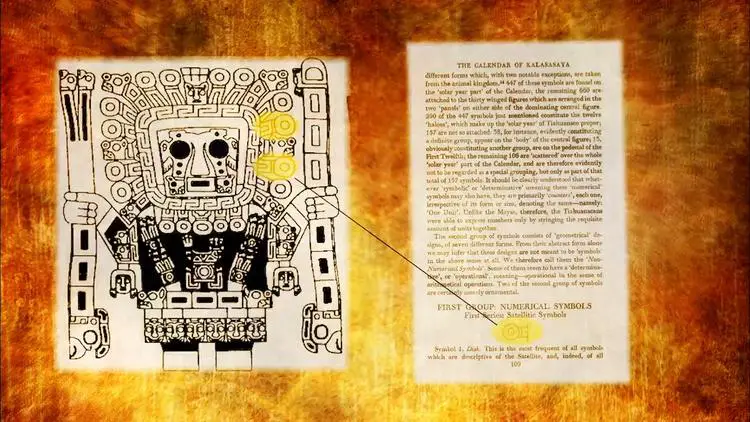 THE CALENDAR OF KALASASAYA
different forms which, with two notable exceptions, are taken
from the animal kingdom.¹⁴ 447 of these symbols are found on
the 'solar year part' of the Calendar, the remaining 660 are
attached to the thirty winged figures which are arranged in the
two 'panels' on either side of the dominating central figure.
290 of the 447 symbols just mentioned constitute the twelve
'halos', which make up the 'solar year' of Tiahuanaco proper;
157 are not so attached: 38, for instance, evidently constituting
a definite group, appear on the 'body' of the central figure; 13,
obviously constituting another group, are on the pedestal of the
First Twelfth; the remaining 106 are 'scattered' over the whole
'solar year' part of the Calendar, and are therefore evidently
not to be regarded as a special grouping, but only as part of that
total of 157 symbols. It should be clearly understood that what-
ever 'symbolic' or 'determinative' meaning these 'numerical'
symbols may also have, they are primarily 'counters', each one,
irrespective of its form or size, denoting the same—namely:
'One Unit'. Unlike the Mayas, therefore, the Tiahuanacans
were able to express numbers only by stringing the requisite
amount of units together.
The second group of symbols consists of 'geometrical' de-
signs, of seven different forms. From their abstract form alone
we may infer that these designs are not meant to be 'symbols'
in the above sense at all. We therefore call them the 'Non-
Numerical Symbols'. Some of them seem to have a 'determina-
tive', or 'operational', meaning—operational in the sense of
arithmetical operations. Two of the second group of symbols
are certainly merely ornamental.
FIRST GROUP: NUMERICAL SYMBOLS
First Series: Satellitic Symbols
Symbol 1, Disk. This is the most frequent of all symbols
which are descriptive of the Satellite, and, indeed, of all
109